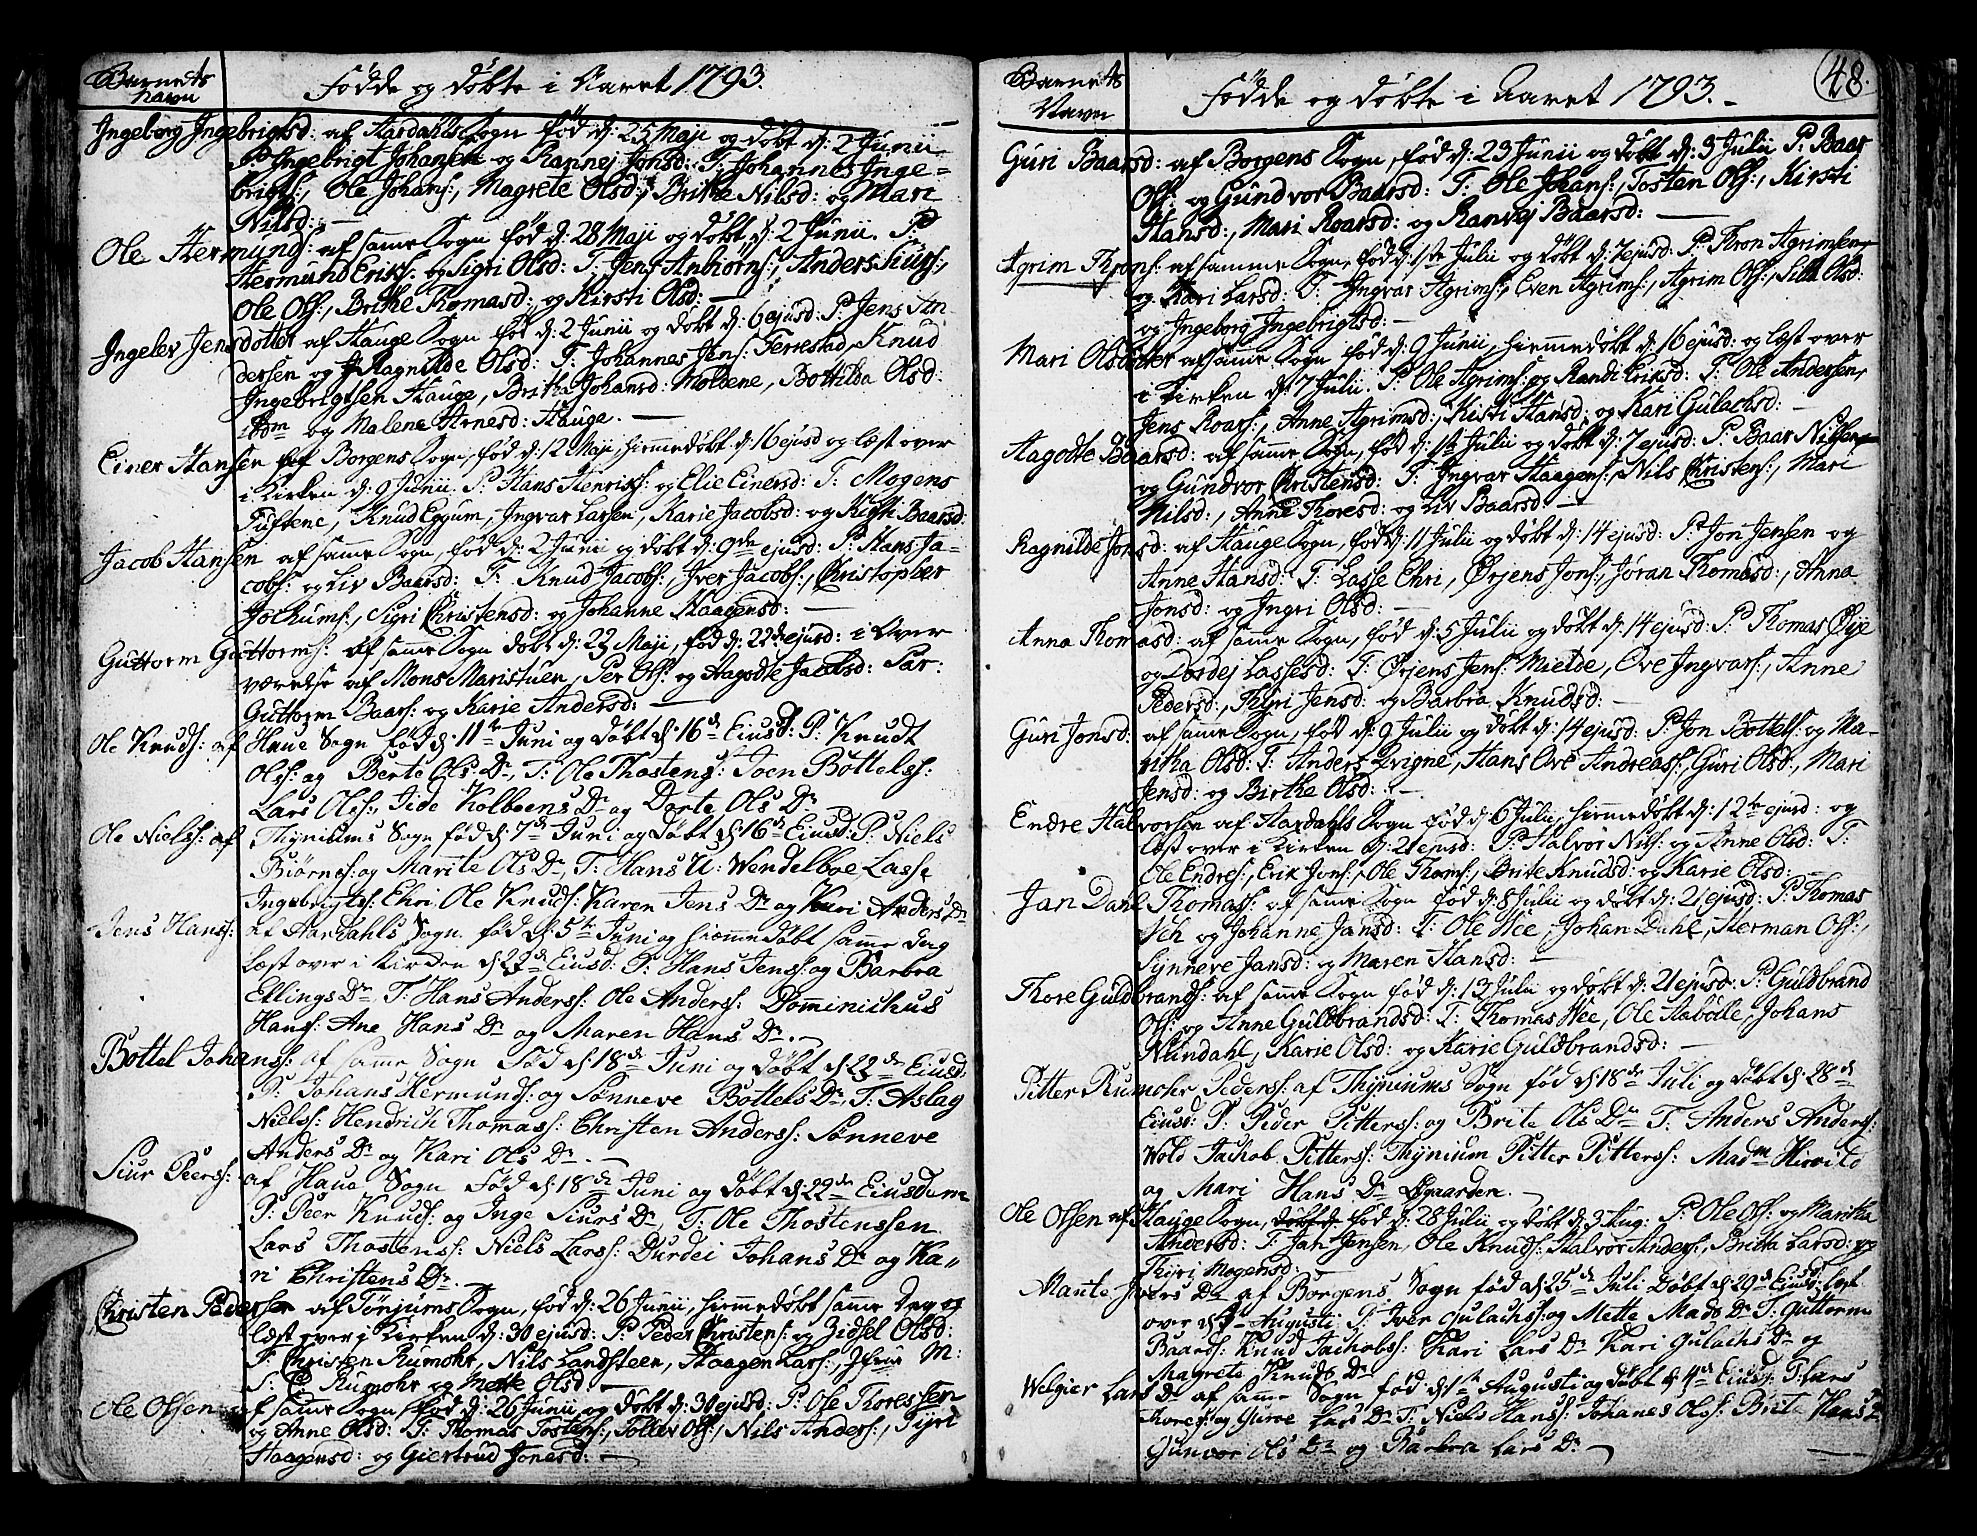 Barnets Navn
Födde og döbte i Aaret 1793.
Ingeborg Ingebrigtsd: af Aardahls Sogn föd d: 25 Maji og döbt d: 2 Junii
P: Ingebrigt Johansen og Rannej Jonsd: T: Johannes Inge=
brigts:, Ole Johans:, Magrete Olsd:, Brithe Nilsd: og Mari
Nilsd: —
Ole Hermunds: af samme Sogn föd d: 28 Maji og döbt d: 2 Junii. P:
Hermund Eriks: og Sigri Olsd: T: Jens Anbiörns:, Anders Siurs:,
Ole Ols:, Brithe Thomasd: og Kirsti Olsd: —
Ingelev Jensdotter af Hauge Sogn föd d: 2 Junii og döbt d: 6 ejusd: P: Jens An
dersen og Ragnilde Olsd: T: Johannes Jens: Ferrestad, Knud
Ingebrigtsen Hauge, Britha Johansd: Moldene, Bottilda Olsd:
ibm og Malene Arnesd: Hauge. —
Einer Hansen af Borgens Sogn, föd d: 12 Maji, hiemmedöbt d: 16 ejusd og læst over
i Kirken d: 9 Junii. P: Hans Henriks: og Elie Einersd: T: Mogens
Tuftene, Knud Eggum, Ingvar Larsen, Karie Jacobsd: og Baarsd:
Jacob Hansen af samme Sogn, föd d: 2 Junii og döbt d: 9de ejusd: P: Hans Ja=
cobs: og Liv Baarsd: T: Knud Jacobs:, Iver Jacobs:, Christopher
Jochums:, Sigri Christensd: og Johanne Haagensd: —
Guttorm Guttorms: af samme Sogn döbt d: 23 Maji, föd d: 22de ejusd: i Over
værelse af Mons Maristuen, Per Ols: og Aagodte Jacobsd: Par:
Guttorm Baars: og Karie Andersd: —
Ole Knuds: af Haue Sogn föd d: 11te Juni og döbt d: 16de Eiusd: P: Knudt
Ols: og Berte Ols Dr, T: Ole Thostens: Joen Bottels:
Lars Oles: Ide Kolbeens Dr og Dorte Ols Dr
Ole Niels: af Thyniums Sogn föd d: 7de Juni og Döbt d: 16de Eiusd: P: Niels
Biörns: og Marite Ols Dr, T: Hans U: Wendelboe Lasse
Ingebrigts: Ehri. Ole Knuds: Karen Jens Dr og Kari Anders Dr
Jens Hans: af Aardahls Sogn föd d: 5te Juni og hiemmedöbt samme dag
læst over i Kirken d: 22de Eiusd: P: Hans Jens: og Barbra
Ellings Dr T: Hans Anders: Ole Anders: Dominichus
Hans: Ane Hans Dr og Maren Hans Dr. —
Bottel Johans: af samme Sogn Föd d: 18de Juni og döbt d: 22de Eiusd:
P: Johans Hermunds: og Sönneve Bottels Dr, T: Aslag
Niels: Hendrich Thomas: Christen Anders: Sönneve
Anders Dr og Kari Ols Dr. —
Siur Peers: af Haue Sogn Föd d: 18de Juni og döbt d: 22de Eiusdem
P: Peer Knuds: og Inge Siurs Dr, T: Ole Thostenssen
Lars Thostens: Niels Lars: Durdei Johans Dr og Ka=
ri Christens Dr.
Christen Pedersen af Tönjums Sogn, föd d: 26 Junii, hiemmedöbt samme dag og
læst over i Kirken d: 30 ejusd: P: Peder Christens: og Zidsel Olsd:
T: Christen Rumohr, Nils Landsteen, Haagen Lars:, Jfrue M:
S: C: Rumohr og Mette Olsd: —
Ole Olsen af samme Sogn föd d: 26 Junii og döbt d: 30 ejusd: P: Ole Thoressen
og Anne Olsd: T: Thomas Tostens:, Tollev Ols:, Nils Anders:, Tyri
Haagensd: og Giertrud Jonesd: —
48.
Barnets Navn
Födde og döbte i Aaret 1793. —
Guri Baarsd: af Borgens Sogn, föd d: 23 Junii og döbt d: 3 Julii P: Baar
Ols: og Gundvor Baarsd: T: Ole Johans:, Tosten Ols:, Kirsti
Hansd:, Mari Roarsd: og Ranvej Baarsd: —
Agrim Throns: af samme Sogn, föd d: 1ste Julii og döbt d: 7 ejusd: P: Thron Agrimsen
og Kari Larsd: T: Ingvar Agrims:, Even Agrims:, Agrim Ols:, Sille Olsd:
og Ingeborg Ingebrigtsd: —
Mari Olsdotter af samme Sogn föd d: 9 Junii, hiemmedöbt d: 16 ejusd: og læst over
i Kirken d: 7 Julii, P: Ole Agrims: og Randi Eriksd: T: Ole Andersen,
Jens Roars:, Anne Agrimsd:, Kisti Hansd: og Kari Gulachsd: —
Aagodte Baarsd: af samme Sogn, föd d: 1ste Julii og döbt d: 7 ejusd: P: Baar Nilsen
og Gundvor Christensd: T: Ingvar Haagens:, Nils Christens:, Mari
Nilsd:, Anne Thoresd: og Liv Baarsd: —
Ragnilde Jonsd: af Hauge Sogn, föd d: 11 Julii og döbt d: 14 ejusd: P: Jon Jensen og
Anne Hansd: T: Lasse Ehri, Örjens Jons:, Jöran Thomasd:, Anna
Jonsd: og Ingri Olsd: —
Anna Thomasd: af samme Sogn, föd d: 5 Julii og döbt d: 14 ejusd: P: Thomas Öyje
og Dordej Lassesd: T: Örjens Jens: Mielde, Ove Ingvars:, Anne
Pedersd:, Thyri Jensd: og Barbra Knudsd: —
Guri Jonsd: af samme Sogn, föd d: 9 Julii og döbt d: 14 ejusd: P: Jon Bottels: og Ma=
ritha Olsd: T: Anders Qvigne, Hans Ove Andreas:, Guri Olsd:, Mari
Jensd: og Birthe Olsd: —
Endre Halvorsen af Aardahls Sogn föd d: 6 Julii, hiemmedöbt d: 12te ejusd: og
læst over i Kirken d: 21 ejusd: P: Halvor Nils: og Anne Olsd: T:
Ole Endres:, Erik Jons:, Ole Thoms:, Brite Knudsd: og Karie Olsd: —
Jan Dahl Thomas: af samme Sogn föd d: 8 Julii og döbt d: 21 ejusd: P: Thomas
og Johanne Jansd: T: Ole Wee, Johan Dahl, Herman Ols:,
Synneve Jansd: og Maren Hansd: —
Thore Guldbrands: af samme Sogn föd d: 13 Julii og döbt d: 21 ejusd: P: Guldbrand
Ols: og Anne Guldbrandsd: T: Thomas Wee, Ole Aaböele, Johans
Nundahl, Karie Olsd: og Karie Guldbrandsd: —
Pitter Rumohr Peders: af Thyniums Sogn föd d: 18de Juli og döbt d: 28de
Eiusd: P: Peder Pitters: og Brite Ols Dr T: Anders Anders:
Wold Jachob Pitters: Thynium Pitter Pitters: Madm Hirvild
og Mari Hans Dr Ögaarden. —
Ole Olsen af Hauge Sogn, föd d: 28 Julii og döbt d: 3 Aug: P: Ole Ols: og Maritha
Andersd: T: Jan Jensen, Ole Knuds: Halvor Anders:, Britha Larsd: og
Thyri Mogensd:
Mante Ivers Dr af Borgens Sogn föd d: 25de Juli Döbt d: 29de Eiusd: læst
over d: Augusti P: Iver Gulachs: og Mette Mads Dr T: Guttorm
Baards: Knud Jachobs: Kari Lars Dr Kari Gulachs Dr og
Magrete Knuds Dr
Welgier Lars Dr af samme Sogn föd d: 1te Augusti og döbt d: 4de Eiusd: P: Lars
Thores: og Gurve Lars Dr T: Niels Hans: Johanes Ols: Brite Hans Dr
Gunvor Ols Dr og Barbra Lars Dr —